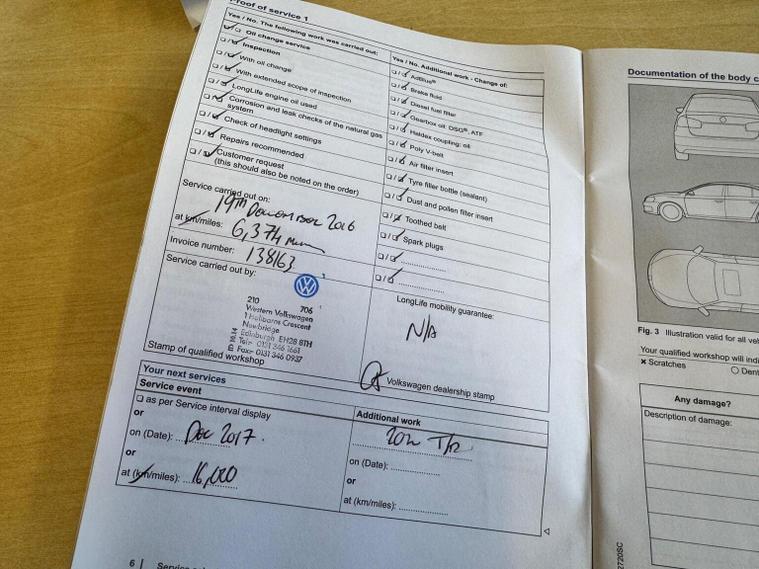 Proof of service 1
Yes / No. The following work was carried out:
Oil change service
Inspection
With oil change
With extended scope of inspection
LongLife engine oil used
Corrosion and leak checks of the natural gas
system
Check of headlight settings
Repairs recommended
Customer request
(this should also be noted on the order)
Yes / No. Additional work - Change of:
AdBlue®
Brake fluid
Diesel fuel filter
Gearbox oil: DSG®, ATF
Haldex coupling: oil
Poly V-belt
Air filter insert
Tyre filler bottle (sealant)
Dust and pollen filter insert
Toothed belt
Spark plugs
Service carried out on:
19th December 2016
at km/miles: 6,374 miles
Invoice number: 138163
Service carried out by:
210 706
Western Volkswagen
1 Hallbarns Crescent
Newbridge
Edinburgh EH28 8TH
Tel: 0131 346 1661
Fax: 0131 346 0937
Stamp of qualified workshop
LongLife mobility guarantee:
N/A
Volkswagen dealership stamp
Your next services
Service event
as per Service interval display
or
on (Date): Dec 2017.
or
at (km/miles): 16,000
Additional work
on (Date):
or
at (km/miles):
6
Documentation of the body c
Fig. 3 Illustration valid for all veh
Your qualified workshop will indi
× Scratches
Dent
Any damage?
Description of damage: